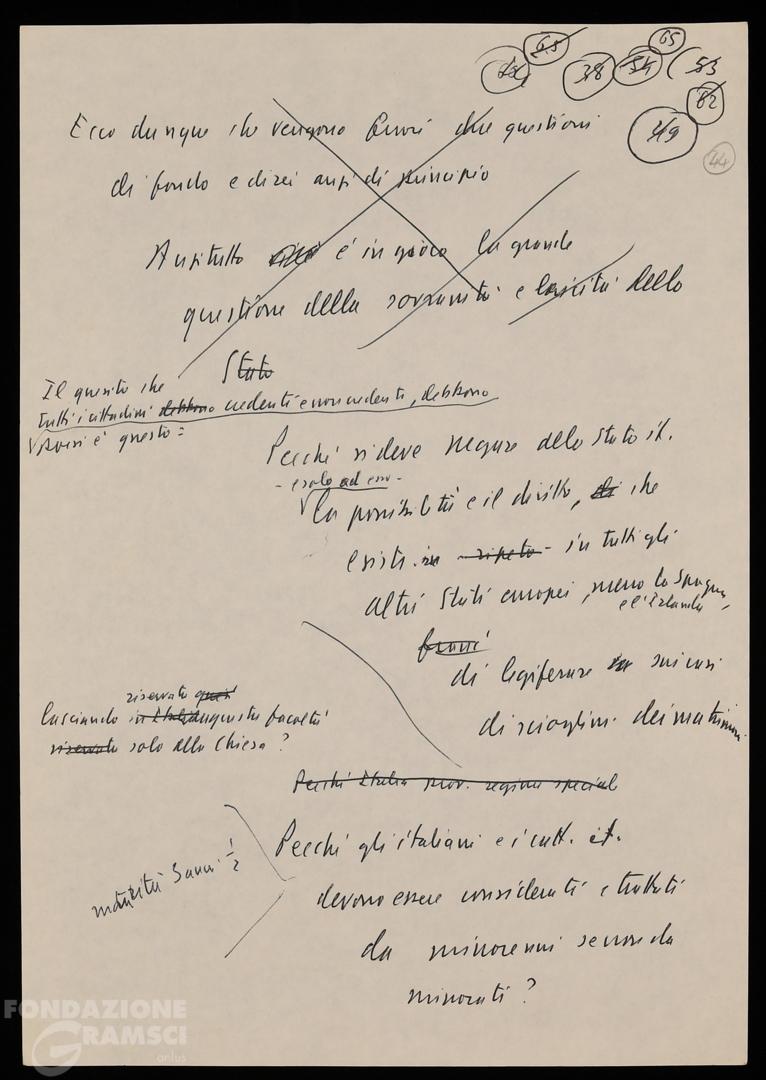 65 65
38 54 53
82
49
44
Ecco dunque che vengono fuori due questioni
di fondo e direi anzi di principio
Anzitutto è in gioco la grande
questione della sovranità e laicità dello
Stato
Il quesito che
tutti i cittadini debbono credenti e non credenti, debbono
porsi è questo:
Perché si deve negare allo Stato it.
- e solo ad esso -
la possibilità e il diritto, di che
esiste in - ripeto - in tutti gli
altri Stati europei, meno la Spagna
e l'Irlanda,
fuori
di legiferare in sui casi
di scioglim. dei matrimoni
riservata quasi
lasciando in Italia questa facoltà
riservata solo alla Chiesa?
Perché Italia prov. regime special
Perché gli italiani e i catt. it.
maturità 3 anni 1/2
devono essere considerati e trattati
da minorenni se non da
minorati?
FONDAZIONE
GRAMSCI
onlus